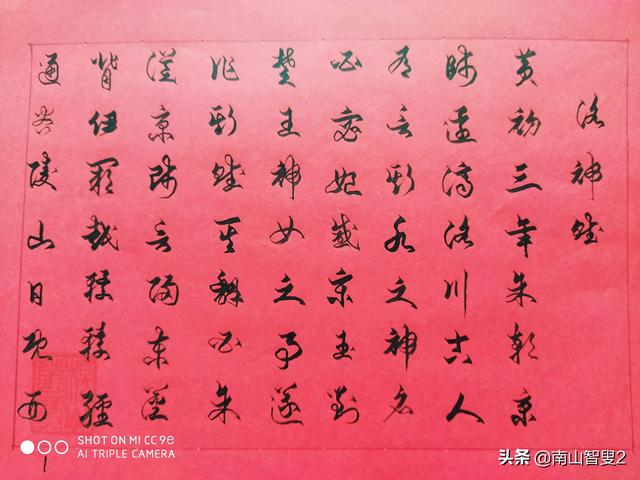 洛神賦
黄初三年余朝京
師還濟洛川古人
有言斯水之神名
曰宓妃感宋玉對
楚王神女之事遂
作斯賦其辭曰余
從京師言歸東藩
背伊闕越轘轅經
通谷陵山日既西
SHOT ON MI CC 9e
AI TRIPLE CAMERA
头条 @南山智叟2